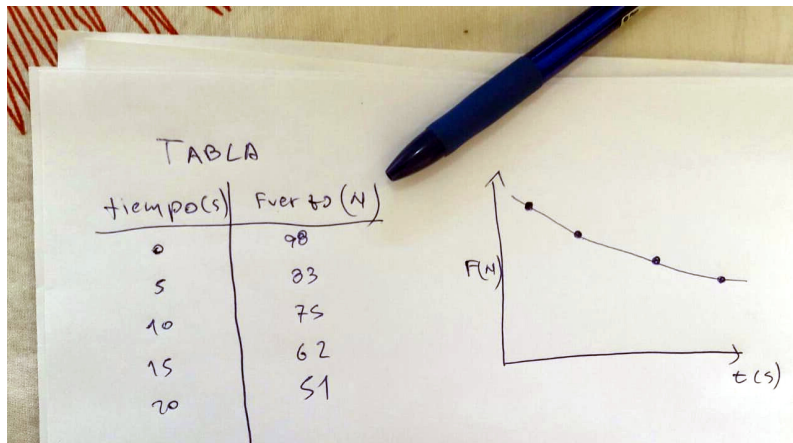 TABLA
tiempo(s) Fuerza (N)
0 98
5 83
10 75
15 62
20 51
F(N)
t(s)